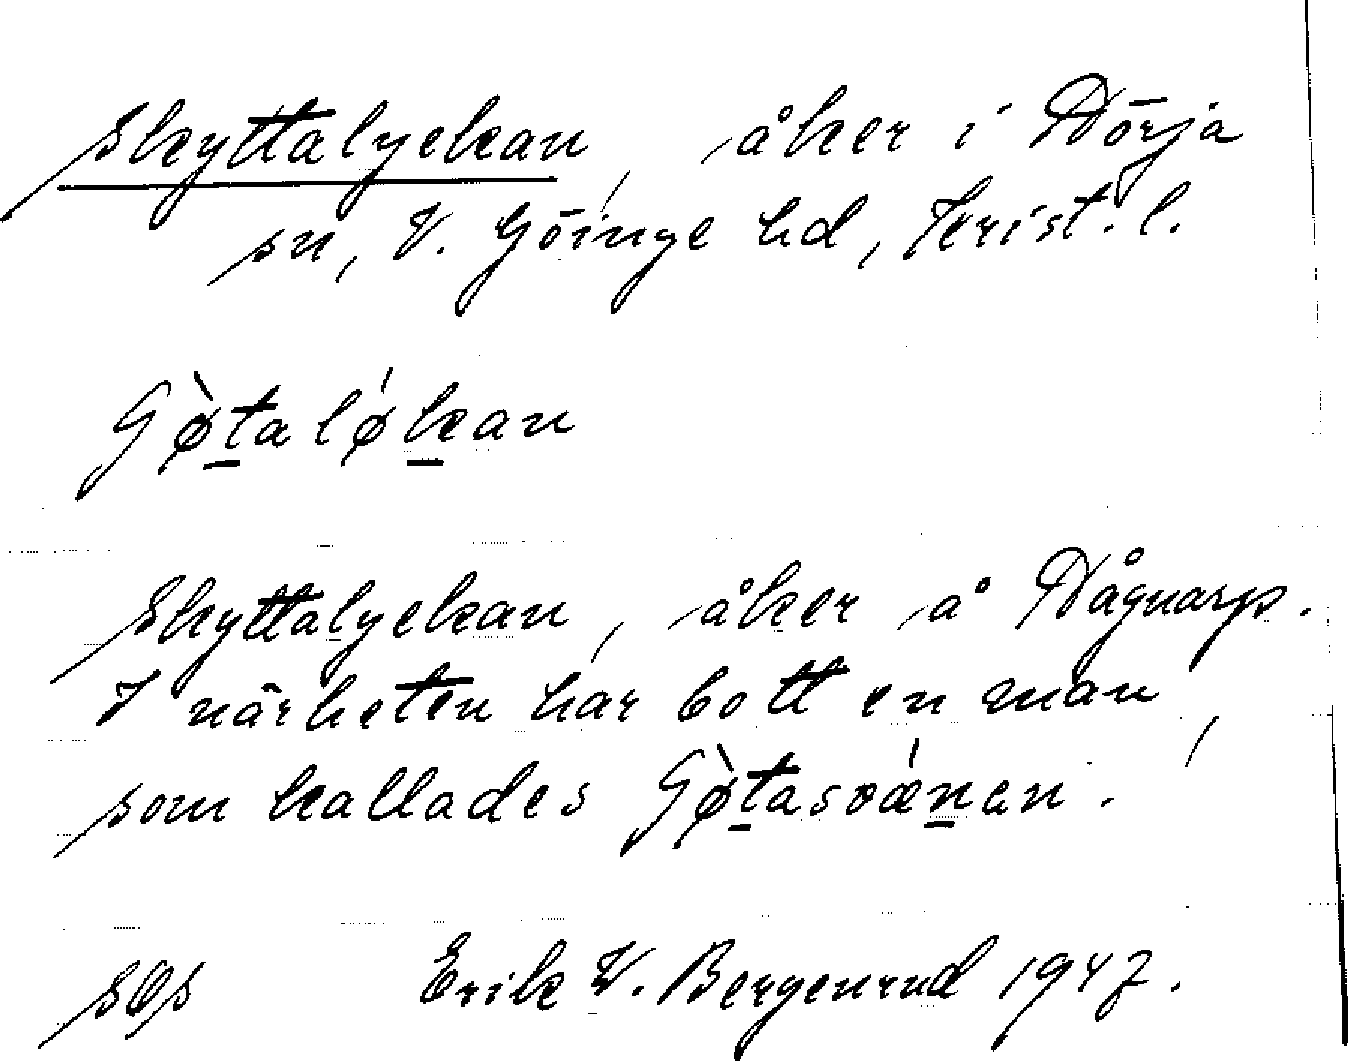 Skyttalyckan, åker i Nörja
sn, V. Göinge hd, Krist. l.
Gø̀t̲alǿk̲an
Skyttalyckan, åker å Någnarp.
I närheten har bott en man,
som kallades Gø̀t̲asvǽn̲an.
Erik W. Bergenrud 1947.